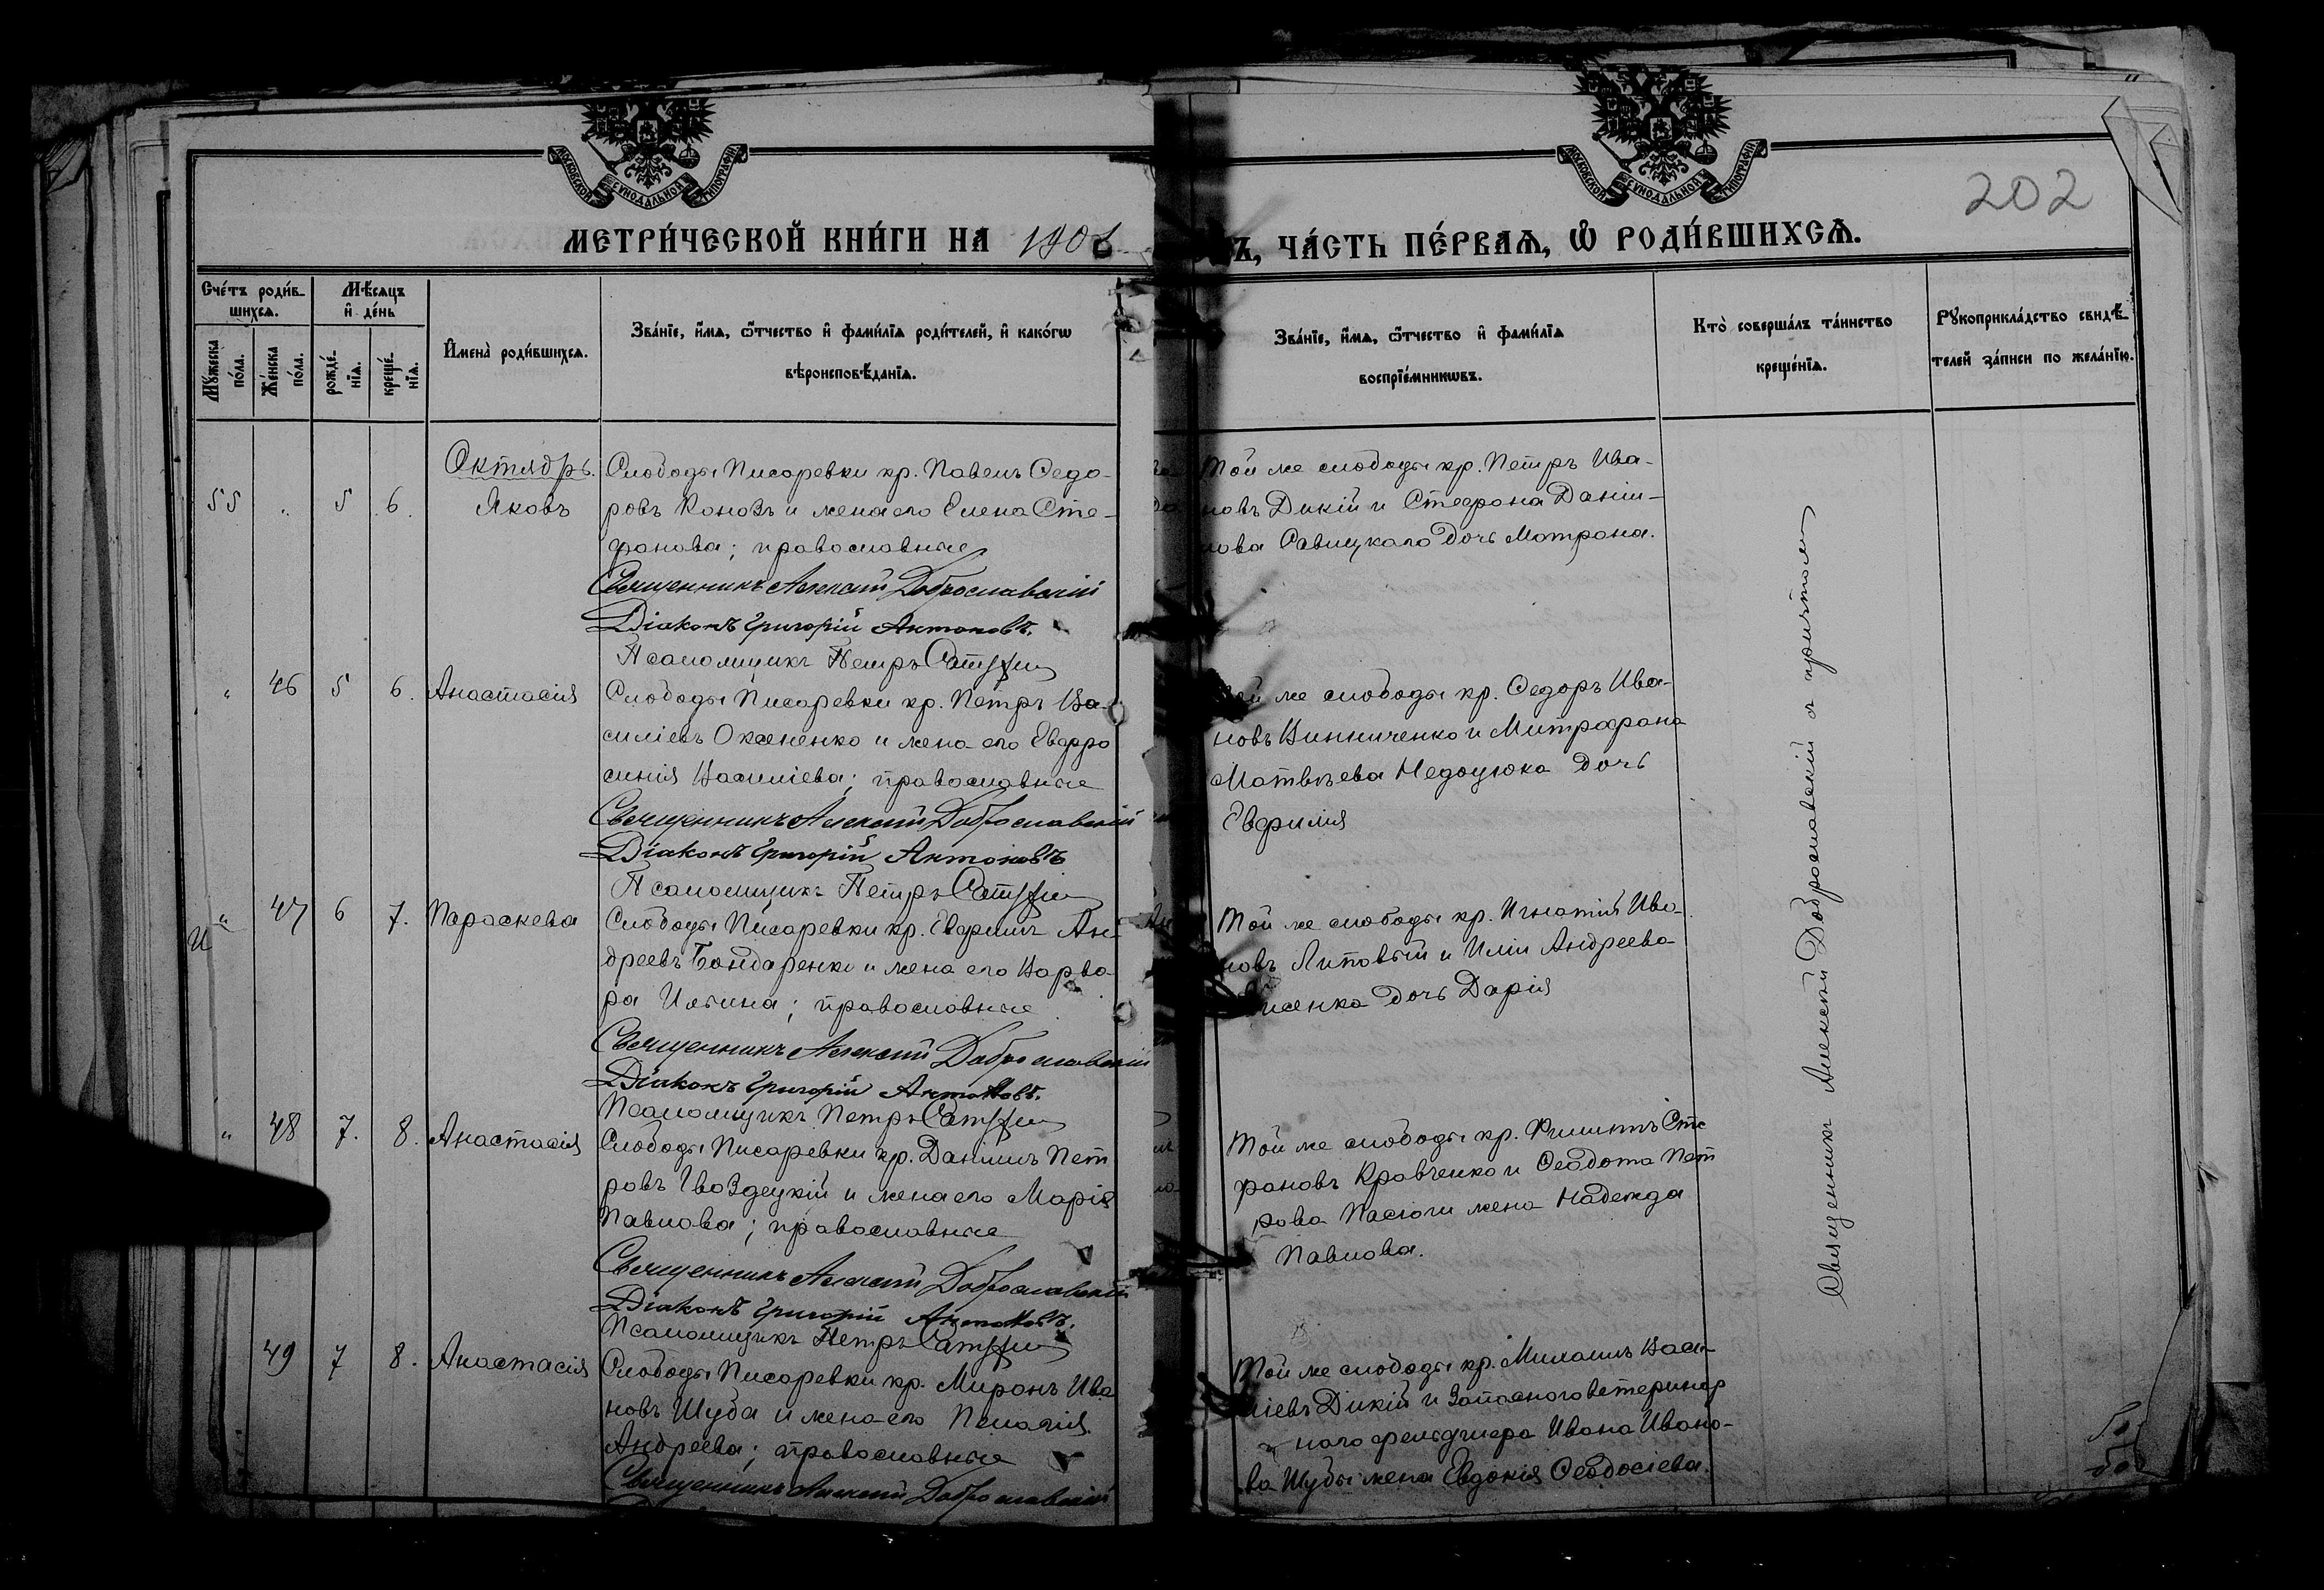 МОСКОВСКОЙ СѴНОДАЛЬНОЙ ТИПОГРАФІИ
МОСКОВСКОЙ СѴНОДАЛЬНОЙ ТИПОГРАФІИ
202
МЕТРИ́ЧЕСКОЙ КНИ́ГИ НА 190
Ъ, ЧА́СТЬ ПЕ́РВАѦ, Ѽ РОДИ́ВШИХСѦ.
Сче́тъ роди́в-
шихсѧ.
Мѣ́сяцъ
и҆ де́нь
Мꙋ́жеска по́ла.
Же́нска по́ла.
рожде́-нїѧ.
креще́-нїѧ.
И҆мена̀ роди́вшихсѧ.
Зва́нїе, и҆́мѧ, ѻ҆́тчество и҆ фами́лїѧ роди́телей, и҆ како́гѡ
вѣроисповѣ́данїѧ.
Зва́нїе, и҆́мѧ, ѻ҆́тчество и҆ фами́лїѧ
воспрїе́мникѡвъ.
Кто̀ соверша́лъ та́инство
креще́нїѧ.
Рꙋкоприкла́дство свидѣ́-
телей за́писи по жела́нїю.
Октядрь.
55 " 5 6. Яковъ
Слободы Писаревки кр. Павелъ Ѳедо-
ровъ Коновъ и жена его Елена Сте-
фанова; православные
Священникъ Алексій Доброславскій
Діаконъ Григорій Антоновъ.
Псаломщикъ Петръ
Той же слободы кр. Петръ Ива-
новъ Дикій и Стефана Даніи-
лова Савицкаго дочь Матрона.
" 46 5 6. Анастасія
Слободы Писаревки кр. Петръ Ва-
силіевъ Оксененко и жена его Евфро
синія Василіева; православные
Священникъ Алексій Доброславскій
Діаконъ Григорій Антоновъ
Псаломщикъ Петръ
же слободы кр. Ѳедоръ Ива-
новъ Винниченко и Митрофана
Матвѣева Недоцюка дочь
Евфимія
" 47 6 7. Параскева
Слободы Писаревки кр. Евфимъ Ан-
дреевъ Бондаренко и жена его Варва-
ра Ильина; православные
Священникъ Алексій Доброславскій
Діаконъ Григорій Антоновъ.
Псаломщикъ Петръ
Той же слободы кр. Игнатій Ива-
новъ Липовый и Иліи Андреева
дочь Дарія
" 48 7. 8. Анастасія
Слободы Писаревки кр. Даніилъ Пет
ровъ Гвоздецкій и жена его Марія
Павлова; православные
Священникъ Алексій Доброславскій
Діаконъ Григорій Антоновъ.
Псаломщикъ Петръ
Той же слободы кр. Филиппъ Сте
фановъ Кравченко и Ѳеодота Пет
рова Пасюги жена Надежда
Павлова.
49 7 8. Анастасія
Слободы Писаревки кр. Миронъ Ива
новъ Шуба и жена его Пелагія
Андреева; православные
Священникъ Алексій Доброславскій
Той же слободы кр. Михаилъ Васи-
ліевъ Дикій и запасного ветеринар
наго фельдшера Ивана Ивано-
ва Шубы жена Евдокія Ѳеодосіева.
Священникъ Алексій Доброславскій съ причтомъ